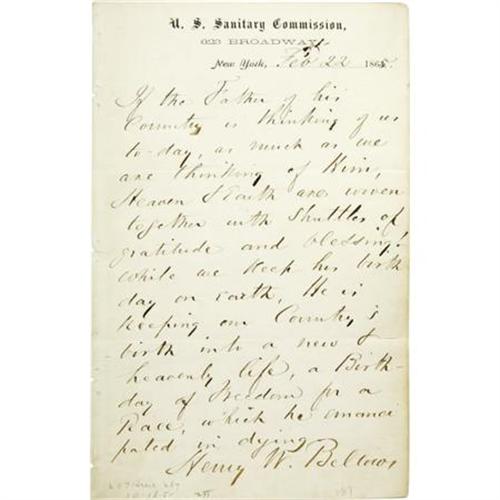 U. S. Sanitary Commission,
823 BROADWAY,
New York, Feb 22 1865.
If the Father of his
Country is thinking of us
to-day, as much as we
are thinking of Him,
Heaven & Earth are woven
together with shuttles of
gratitude and blessing!
While we keep his birth
day on earth, He is
keeping our Country's
birth into a new &
heavenly life, a Birth-
day of Freedom for a
Race, which he emanci
pated in dying
Henry W. Bellows